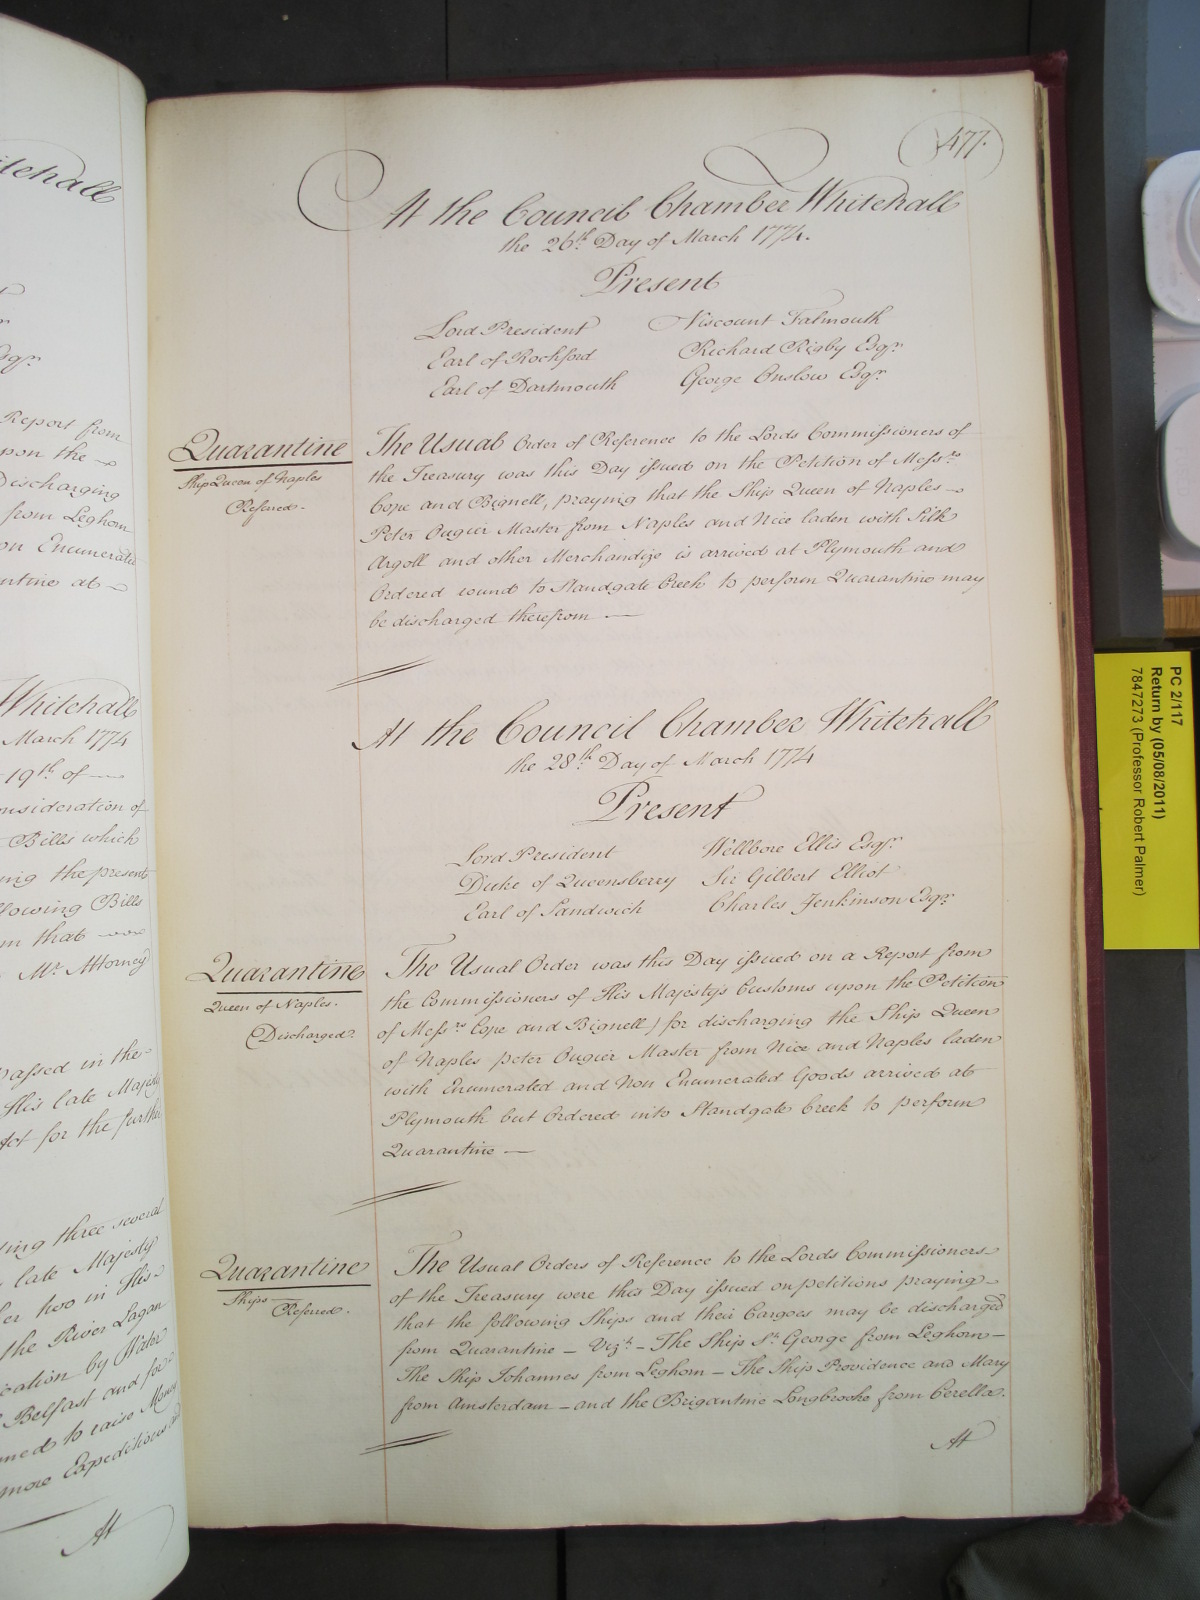 Whitehall
Esqr.
Report from
upon the
Discharging
from Leghorn
on Enumerated
at
Whitehall
March 1774
19th of
Consideration of
Bills which
the present
Bills
that
Mr. Attorney
passed in the
His late Majesty
Act for the further
three several
late Majesty
two in His
the River Lagan
by Water
Belfast and for
to raise Money
more Expeditious
At
477.
At the Council Chamber Whitehall
the 26th Day of March 1774.
Present
Lord President Viscount Falmouth
Earl of Rochford Richard Rigby Esqr.
Earl of Dartmouth George Onslow Esqr.
Quarantine
Ship Queen of Naples
Referred.
The Usual Order of Reference to the Lords Commissioners of
the Treasury was this Day issued on the Petition of Messrs
Cope and Bignell, praying that the Ship Queen of Naples
Peter Ougier Master from Naples and Nice laden with Silk
Argoll and other Merchandize is arrived at Plymouth and
Ordered round to Standgate Creek to perform Quarantine may
be discharged therefrom —
At the Council Chamber Whitehall
the 28th Day of March 1774
Present
Lord President Wellbore Ellis Esqr.
Duke of Queensberry Sir Gilbert Elliot
Earl of Sandwich Charles Jenkinson Esqr.
Quarantine
Queen of Naples.
Discharged.
The Usual Order was this Day issued on a Report from
the Commissioners of His Majestys Customs upon the Petition
of Messrs Cope and Bignell) for discharging the Ship Queen
of Naples peter Ougier Master from Nice and Naples laden
with Enumerated and Non Enumerated Goods arrived at
Plymouth but Ordered into Standgate Creek to perform
Quarantine —
Quarantine
Ships
Referred.
The Usual Orders of Reference to the Lords Commissioners
of the Treasury were this Day issued on petitions praying
that the following Ships and their Cargoes may be discharged
from Quarantine — Vizt. — The Ship St. George from Leghorn —
The Ship Johannes from Leghorn — The Ship Providence and Mary
from Amsterdam — and the Brigantine Longbrooke from Cerella.
At
PC 2/117
Return by (05/08/2011)
7847273 (Professor Robert Palmer)